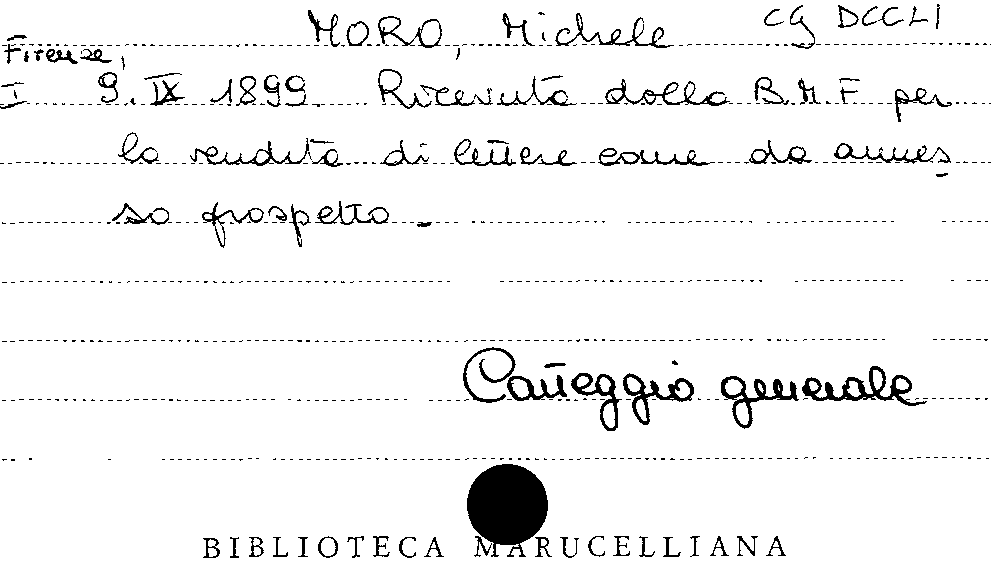 MORO, Michele CG DCCLI
Firenze,
I 9. IX 1899. Ricevuta dalla B.M.F per
la vendita di lettere come da annes
so prospetto.-
Carteggio generale
BIBLIOTECA MARUCELLIANA